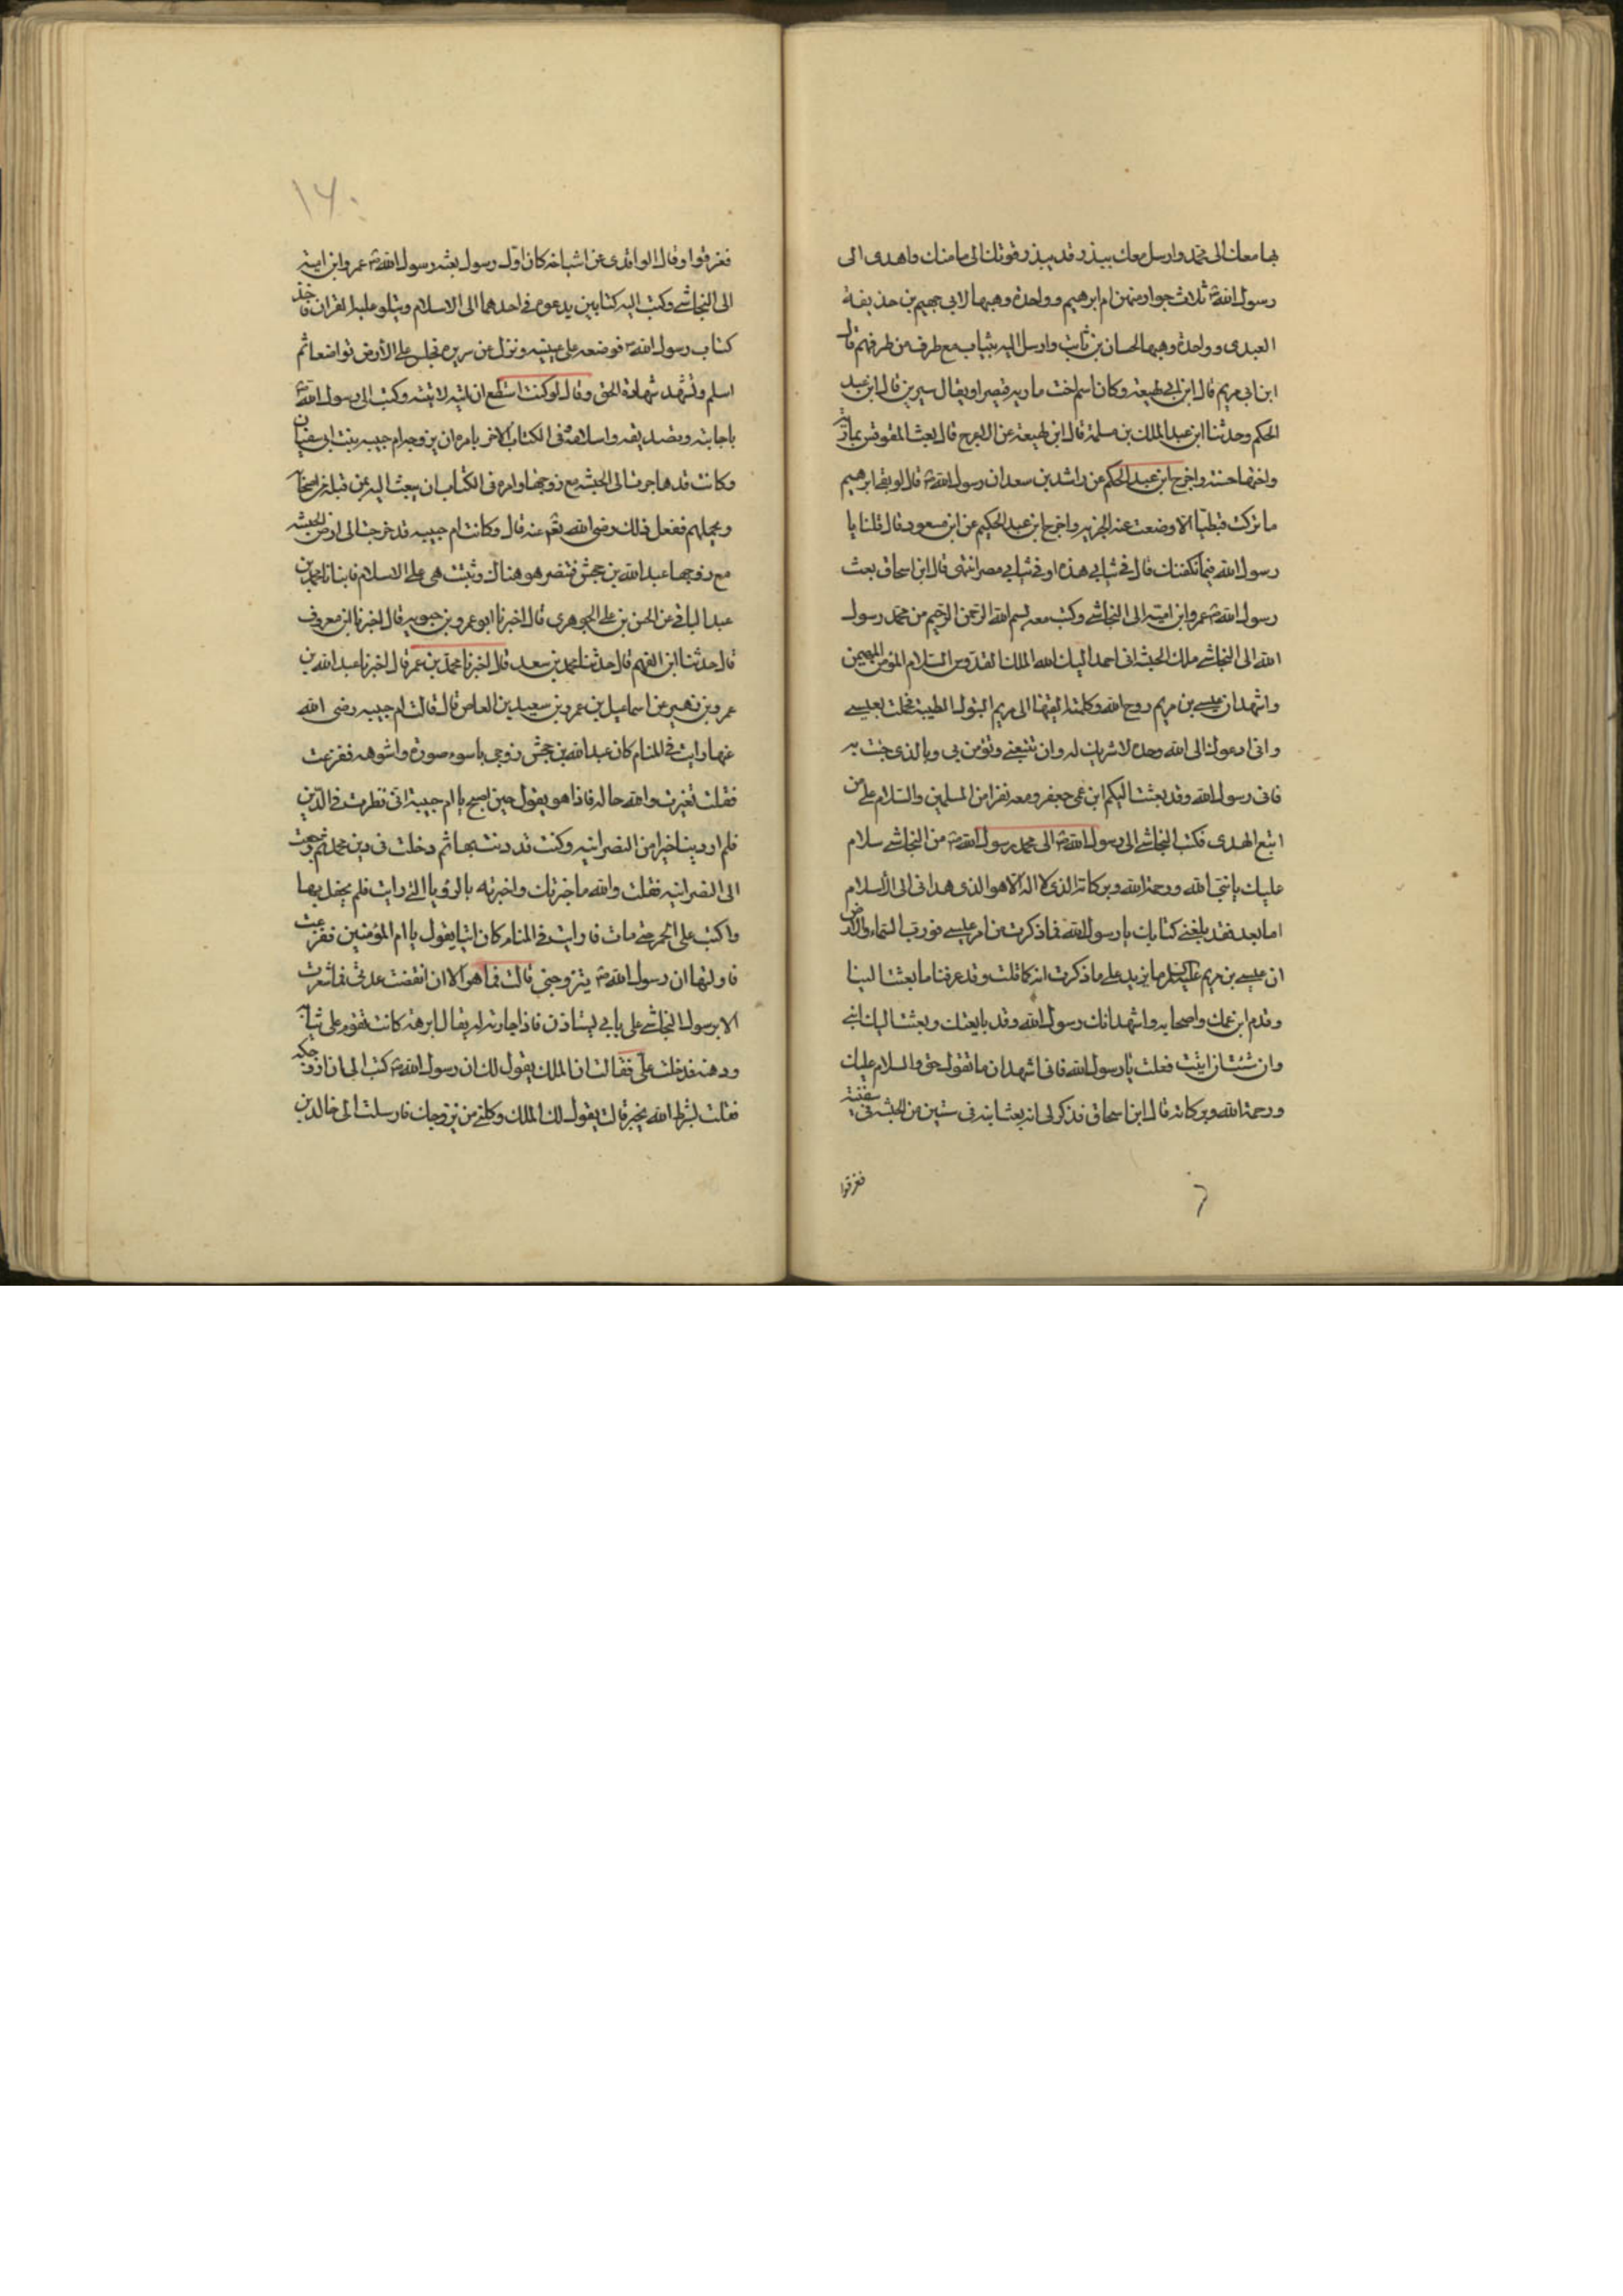 بها معك الى محمد وارسل معك ببذرقة يبذرقونك الى مامنك واهدى الى
رسول الله ثلاث جوار منهن ام ابرهيم وواحدة وهبها لابى جهيم بن حذيفة
العبدى وواحدة وهبها لحسان بن ثابت وارسل اليه بثياب مع طرف من طرفهم قال
ابن ابى مريم قال ابن لهيعة وكان اسم اخت ماريه قيصرا ويقال سيرين قال ابن عبد
الحكم وحدثنا ابن عبد الملك بن مسلمة قال ابن لهيعة عن الاعرج قال بعث المقوقس بمارية
واختها حسنة واخرج ابن عبد الحكم عن راشد بن سعد ان رسول الله قال لو بقى ابرهيم
ما تركت قبطيا الا وضعت عنه الجزيه واخرج ابن عبد الحكيم عن ابن مسعود قال قلنا يا
رسول الله فيما نكفنك قال فى ثيابى هذه او فى ثياب مصر انتهى قال ابن اسحاق بعث
رسول الله عمرو ابن اميه الى النجاشى وكتب معه بسم الله الرحمن الرحيم من محمد رسول
الله الى النجاشى ملك الحبشه انى احمد اليك الله الملك القدوس السلام المؤمن المهيمن
واشهد ان عيسى بن مريم روح الله وكلمته القيها الى مريم البتول الطيبة فحملت بعيسى
وانى ادعوك الى الله وحده لا شريك له وان تتبعنى وتؤمن بى وبالذى جئت به
فانى رسول الله وقد بعثت اليكم ابن عمى جعفر ومعه نفرا من المسلمين والسلام على من
اتبع الهدى فكتب النجاشى الى رسول الله الى محمد رسول الله من النجاشى سلام
عليك يا نبى الله ورحمة الله وبركاته الذى لا اله الا هو الذى هدانى الى الاسلام
اما بعد فقد بلغنى كتابك يا رسول الله فما ذكرت من امر عيسى فورب السماء والارض
ان عيسى بن مريم عليه السلام ما يزيد على ما ذكرت انه كما قلت وقد عرفنا ما بعثت الينا
وقدم ابن عمك واصحابه واشهد انك رسول الله وقد بايعتك وبعثت اليك ابنى
وان شئت ان اتيت فعلت يا رسول الله فانى اشهد ان ما تقول حق والسلام عليك
ورحمة الله وبركاته قال ابن اسحاق فذكر لى انه بعث ابنه فى ستين من الحبشه فى سفينة
فغرقوا
١٦٠
فغرقوا وقال الواقدى عن اشياخه كان اول رسول بعثه رسول الله عمرو ابن اميه
الى النجاشى وكتب اليه كتابين يدعوه فى احدهما الى الاسلام ويتلو عليه القران فاخذ
كتاب رسول الله فوضعه على عينيه ونزل عن سريره فجلس على الأرض تواضعا ثم
اسلم وشهد شهادة الحق وقال لو كنت استطع ان اتيه لاتيته وكتب الى رسول الله
باجابته وتصديقه واسلامه وفى الكتاب الاخر يامره ان يزوجه ام حبيبه بنت ابى سفيان
وكانت قد هاجرت الى الحبشه مع زوجها وامره فى الكتاب ان يبعث اليه من قبله من اصحابه
ويحملهم ففعل ذلك رضى الله تعم عنه قال وكانت ام حبيبه قد خرجت الى ارض الحبشه
مع زوجها عبد الله بن جحش فتنصر هو هناك وثبتت هى على الاسلام فانبانا محمد بن
عبد الباقى عن الحسن بن على الجوهرى قال اخبرنا ابو عمرو بن حيويه قال اخبرنا ابن معروف
قال حدثنا ابن الفهم قال حدثنا محمد بن سعد قال اخبرنا محمد بن عمر قال اخبرنا عبد الله بن
عمرو بن زهير عن اسماعيل بن عمرو بن سعيد بن العاص قال قالت ام حبيبه رضى الله
عنها رايت فى المنام كان عبد الله بن جحش زوجى باسوء صورة واشوهه ففزعت
فقلت تغيرت والله حاله فاذا هو يقول حين اصبح يا ام حبيبة انى نظرت فى الدين
فلم ار دينا خيرا من النصرانيه وكنت قد دنت بها ثم دخلت فى دين محمد ثم رجعت
الى النصرانيه فقلت والله ما خير لك واخبرته بالرؤيا التى رايت فلم يحفل بها
واكب على الخمر حتى مات فارايت فى المنام كان اتيا يقول يا ام المؤمنين ففزعت
فاولتها ان رسول الله يتزوجنى قالت فما هو الا ان انقضت عدتى فما شعرت
الا برسول النجاشى على بابى يستاذن فاذا جارية له يقال ابرهة كانت تقوم على ثيابه
ودهنه فدخلت على فقالت ان الملك يقول لك ان رسول الله كتب الى ان ازوجكه
فقلت بشرك الله بخير قالت يقول لك الملك وكلى من يزوجك فارسلت الى خالد بن